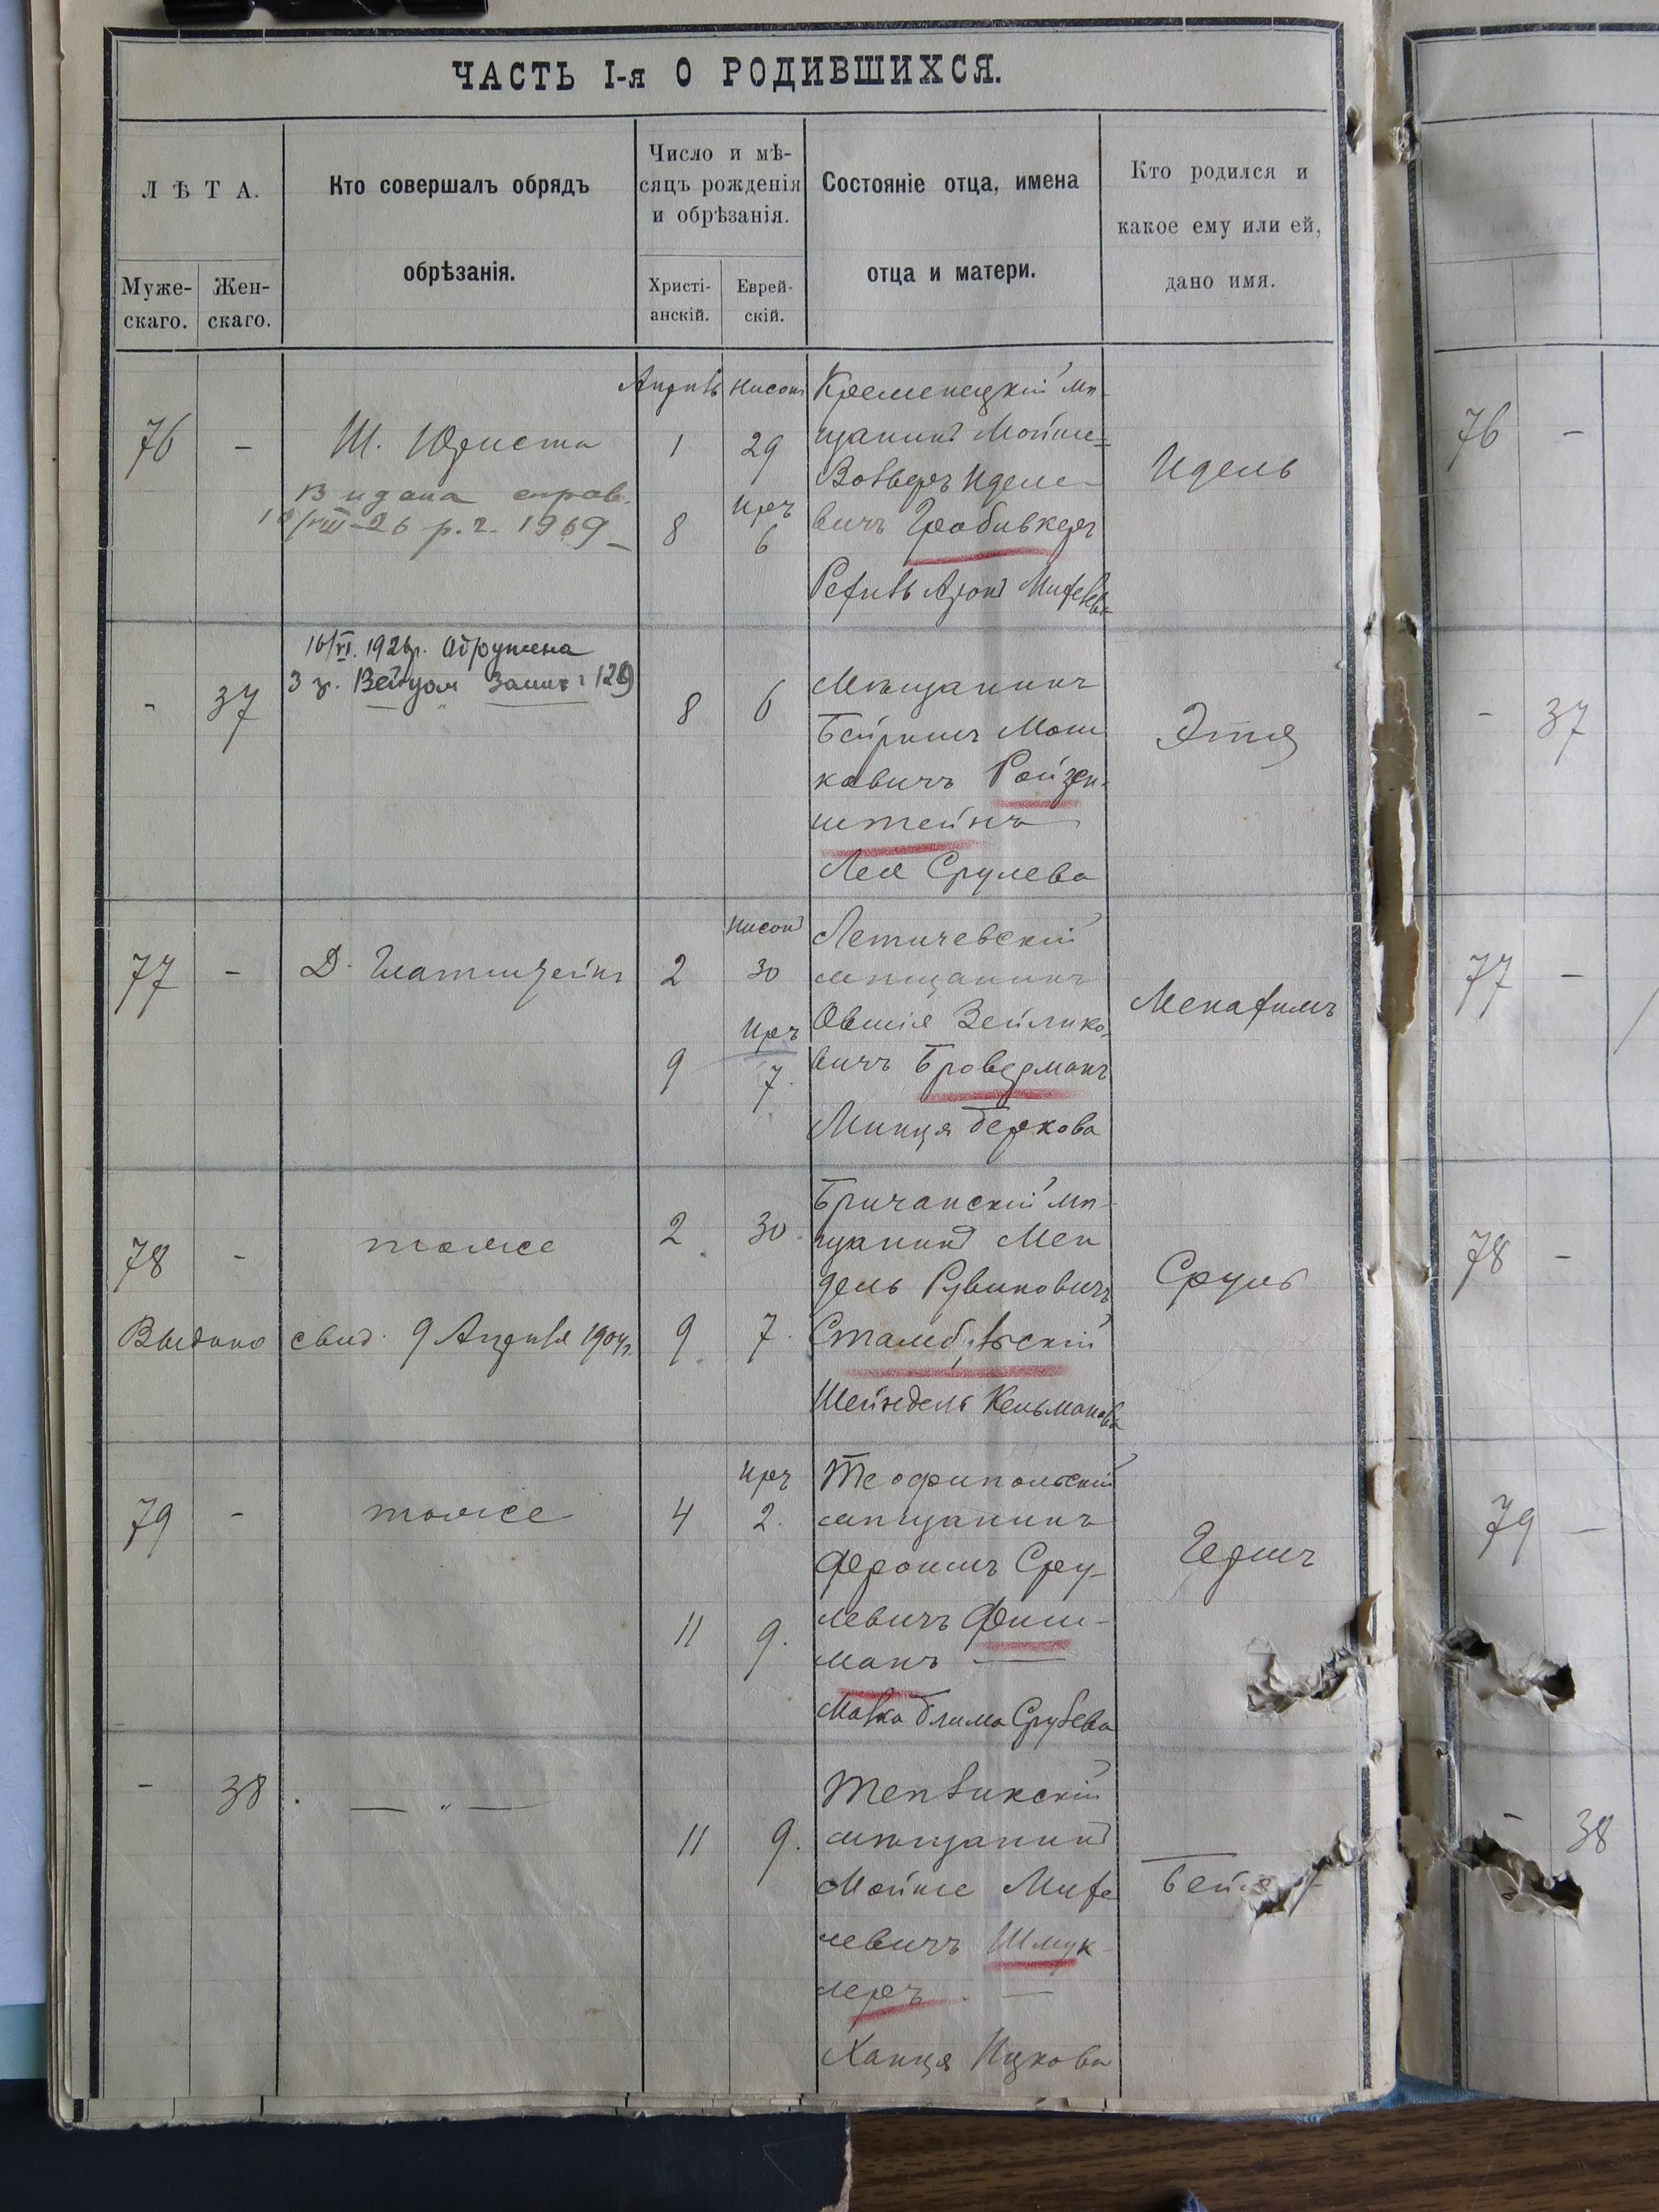 ЧАСТЬ I-я О РОДИВШИХСЯ.
ЛѢТА.
Муже-
скаго.
Жен-
скаго.
Кто совершалъ обрядъ
обрѣзанія.
Число и мѣ-
сяцъ рожденія
и обрѣзанія.
Христі-
анскій.
Еврей-
скій.
Состояніе отца, имена
отца и матери.
Кто родился и
какое ему или ей,
дано имя.
76
-
Ш. Юриста
Видана справ.
р. г. 1969
Апрѣль
1
8
Нисонъ
29
Иръ
6
Кременецкій мѣ-
щанинъ Мойше=
Вольверъ Иделе-
вичъ Грабивкеръ
Идель
76
-
-
37
1926р. Одружена
З г.
8
6
Мѣщанинъ
Бейришъ Мош
ковичъ Ройзен-
штейнъ
Лея Срулева
Этя
-
37
77
-
Д. Глатштейнъ
2
9
Нисонъ
30
Иръ
7.
Летичевскій
мѣщанинъ
Овшія Зейлико-
вичъ Броверманъ
Минця Беркова
Менахимъ
77
-
78
-
тоже
Выдано свид. 9 Апрѣля 1904г.
2
9
30
7.
Бричанскій мѣ-
щанинъ Мен
дель Рувиновичъ
Стамбульскій
Шейндель Кельманова
Сруль
78
-
79
-
тоже
4
11
Иръ
2.
9.
Теофипольскій
мѣщанинъ
Фроимъ Сру-
левичъ Фиш-
манъ
Малка Блима Срулева
Гершъ
79
-
-
38
— " —
11
9.
Тепликскій
мѣщанинъ
Мойше Михе
левичъ Шмук-
леръ. —
Ханця Ицкова
Бейла
-
38